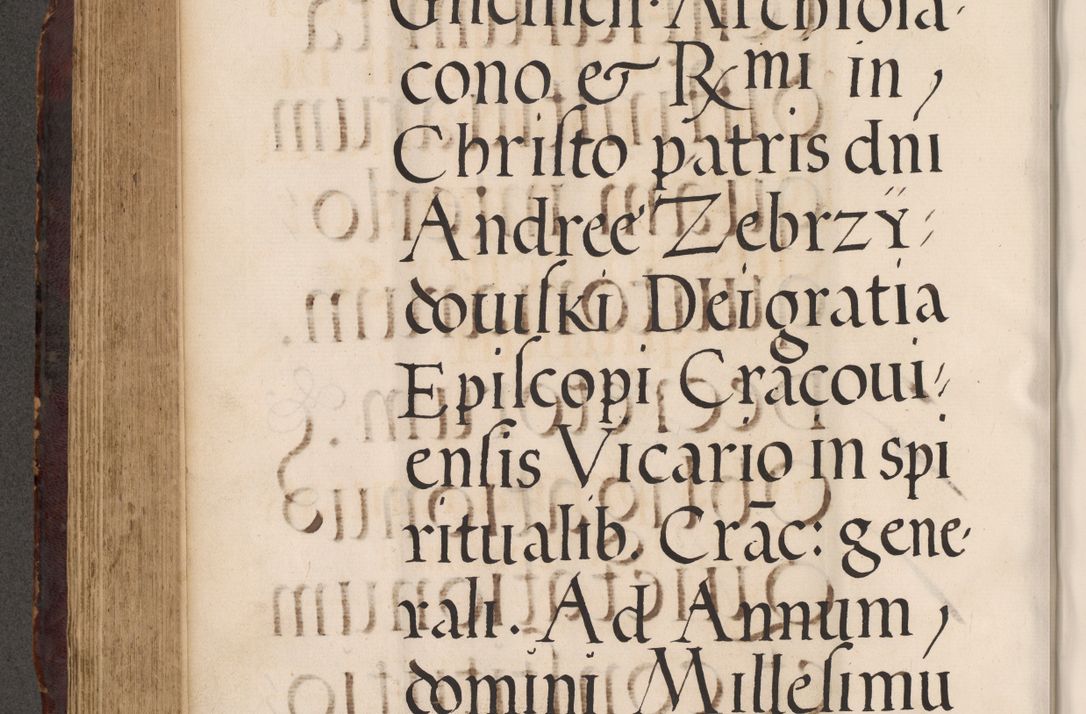 Archidia-
cono & Rmi in,
Chriſto patris dni
Andreé Zebrzÿ-
douiſki Dei gratia
Epiſcopi Crācoui-
enſis Vicario in spi
ritualib. Crāc: gene-
rali. Ad Annum,
domini Milleſimu